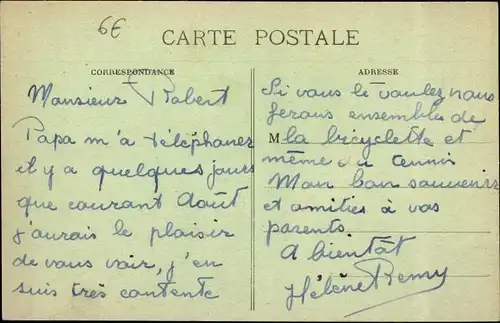 6€
CARTE POSTALE
CORRESPONDANCE
Monsieur Robert
Papa m'a téléphoner
il y a quelques jours
que courant Août
j'aurais le plaisir
de vous voir, j'en
suis très contente
ADRESSE
Si vous le voulez nous
ferons ensembles de
M la bicyclette et
même du tennis
Mon bon souvenir
et amitiés à vos
parents.
A bientôt
Hélène Remy